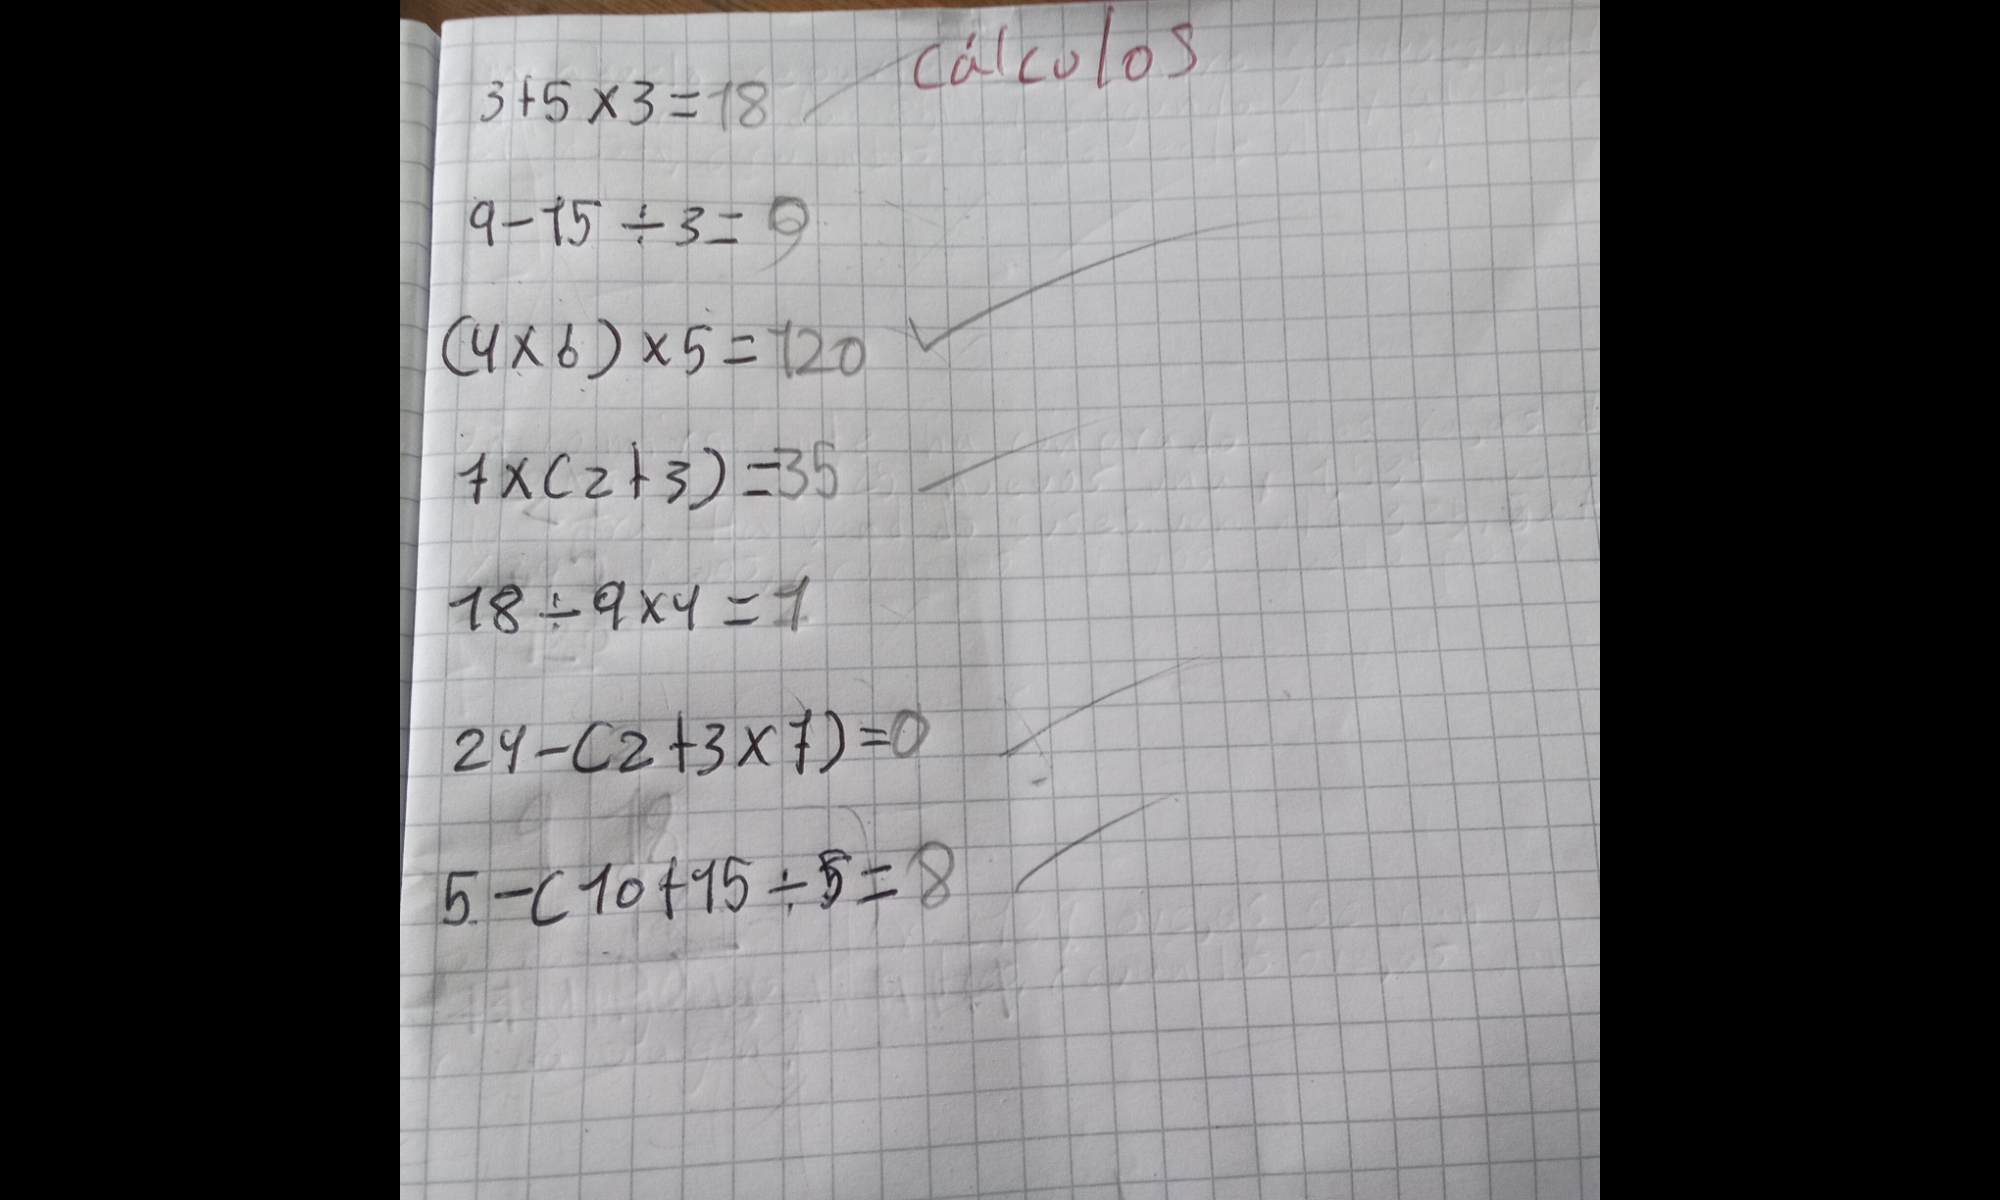 cálculos
3+5×3=18
9-15÷3=9
(4×6)×5=120
7×(2+3)=35
18÷9×4=1
24-(2+3×7)=0
5-(10+15÷5=8